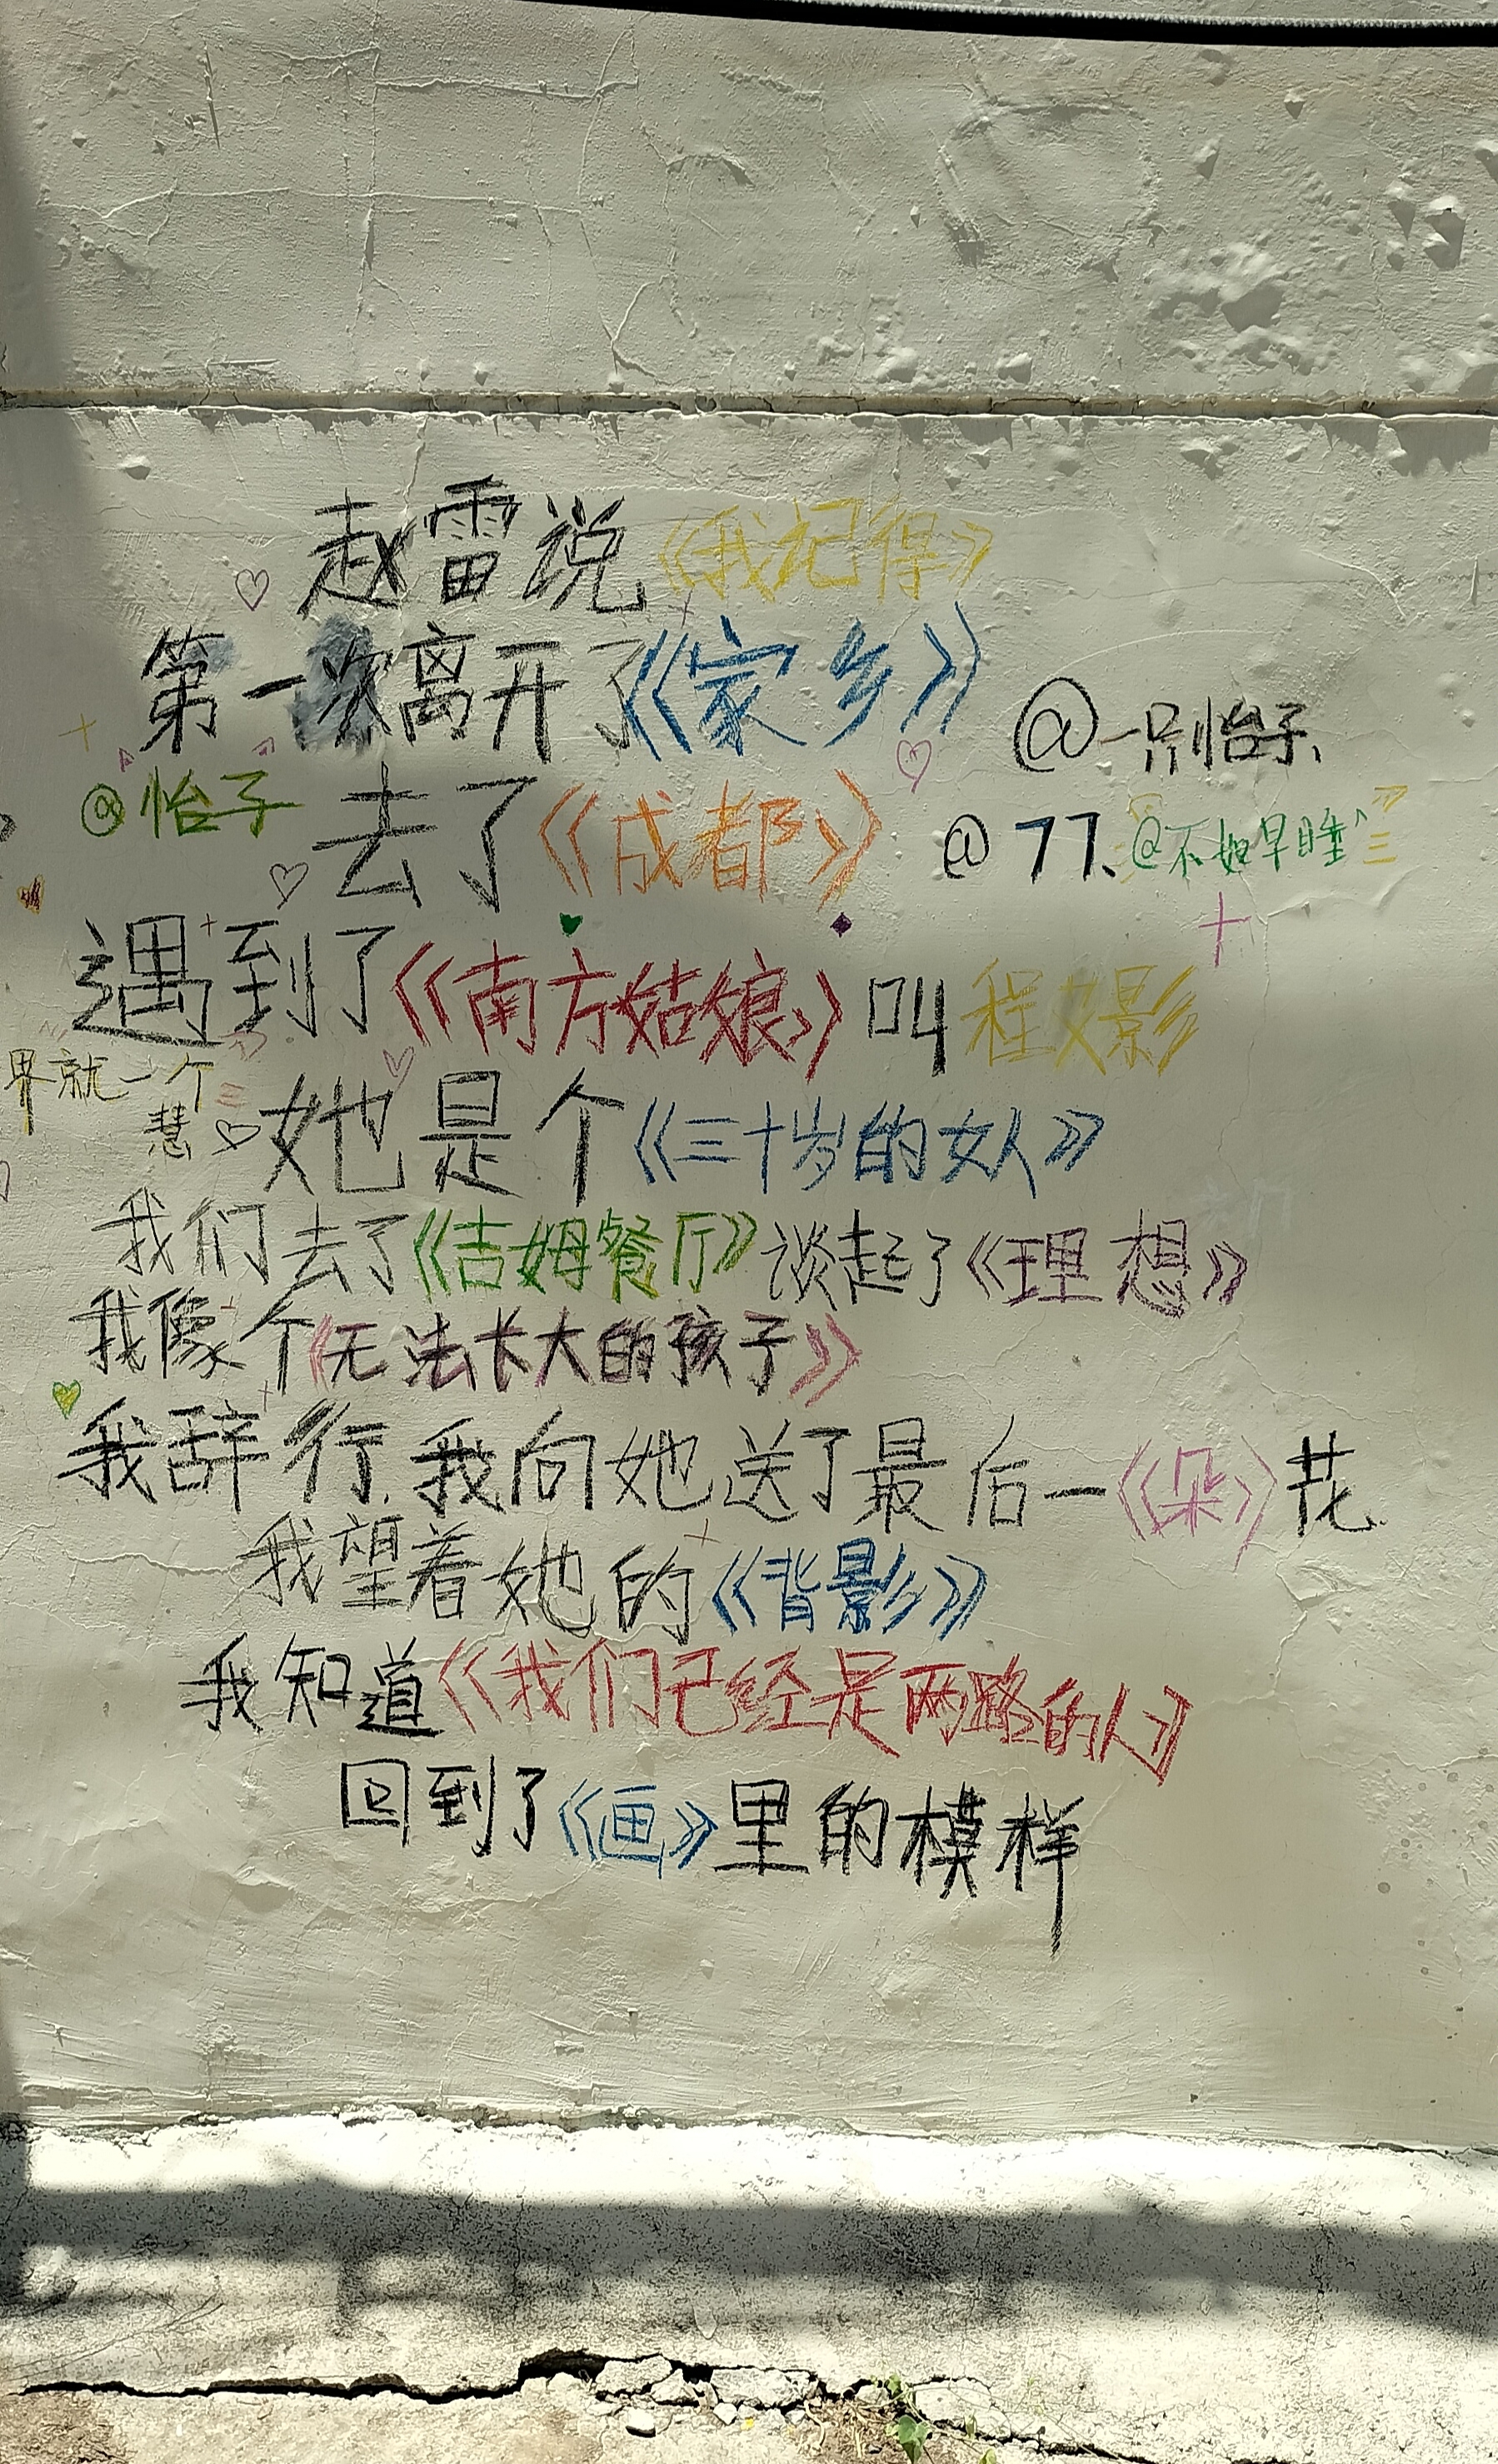 赵雷说《我记得》
第一次离开了《家乡》
@一只怡子、
@怡子
去了《成都》
@77、@不如早睡
遇到了《南方姑娘》叫程影
界就一个
慧
她是个《三十岁的女人》
我们去了《吉姆餐厅》谈起了《理想》
我像个《无法长大的孩子》
我辞行.我向她送了最后一《朵》花.
我望着她的《背影》
我知道《我们已经是两路的人》
回到了《画》里的模样